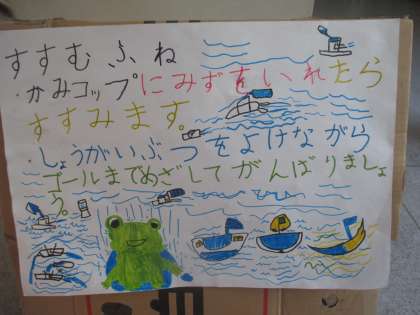 すすむふね
・かみコップにみずをいれたら
すすみます。
・しょうがいぶつをよけながら
ゴールまでめざしてがんばりましょ
う。